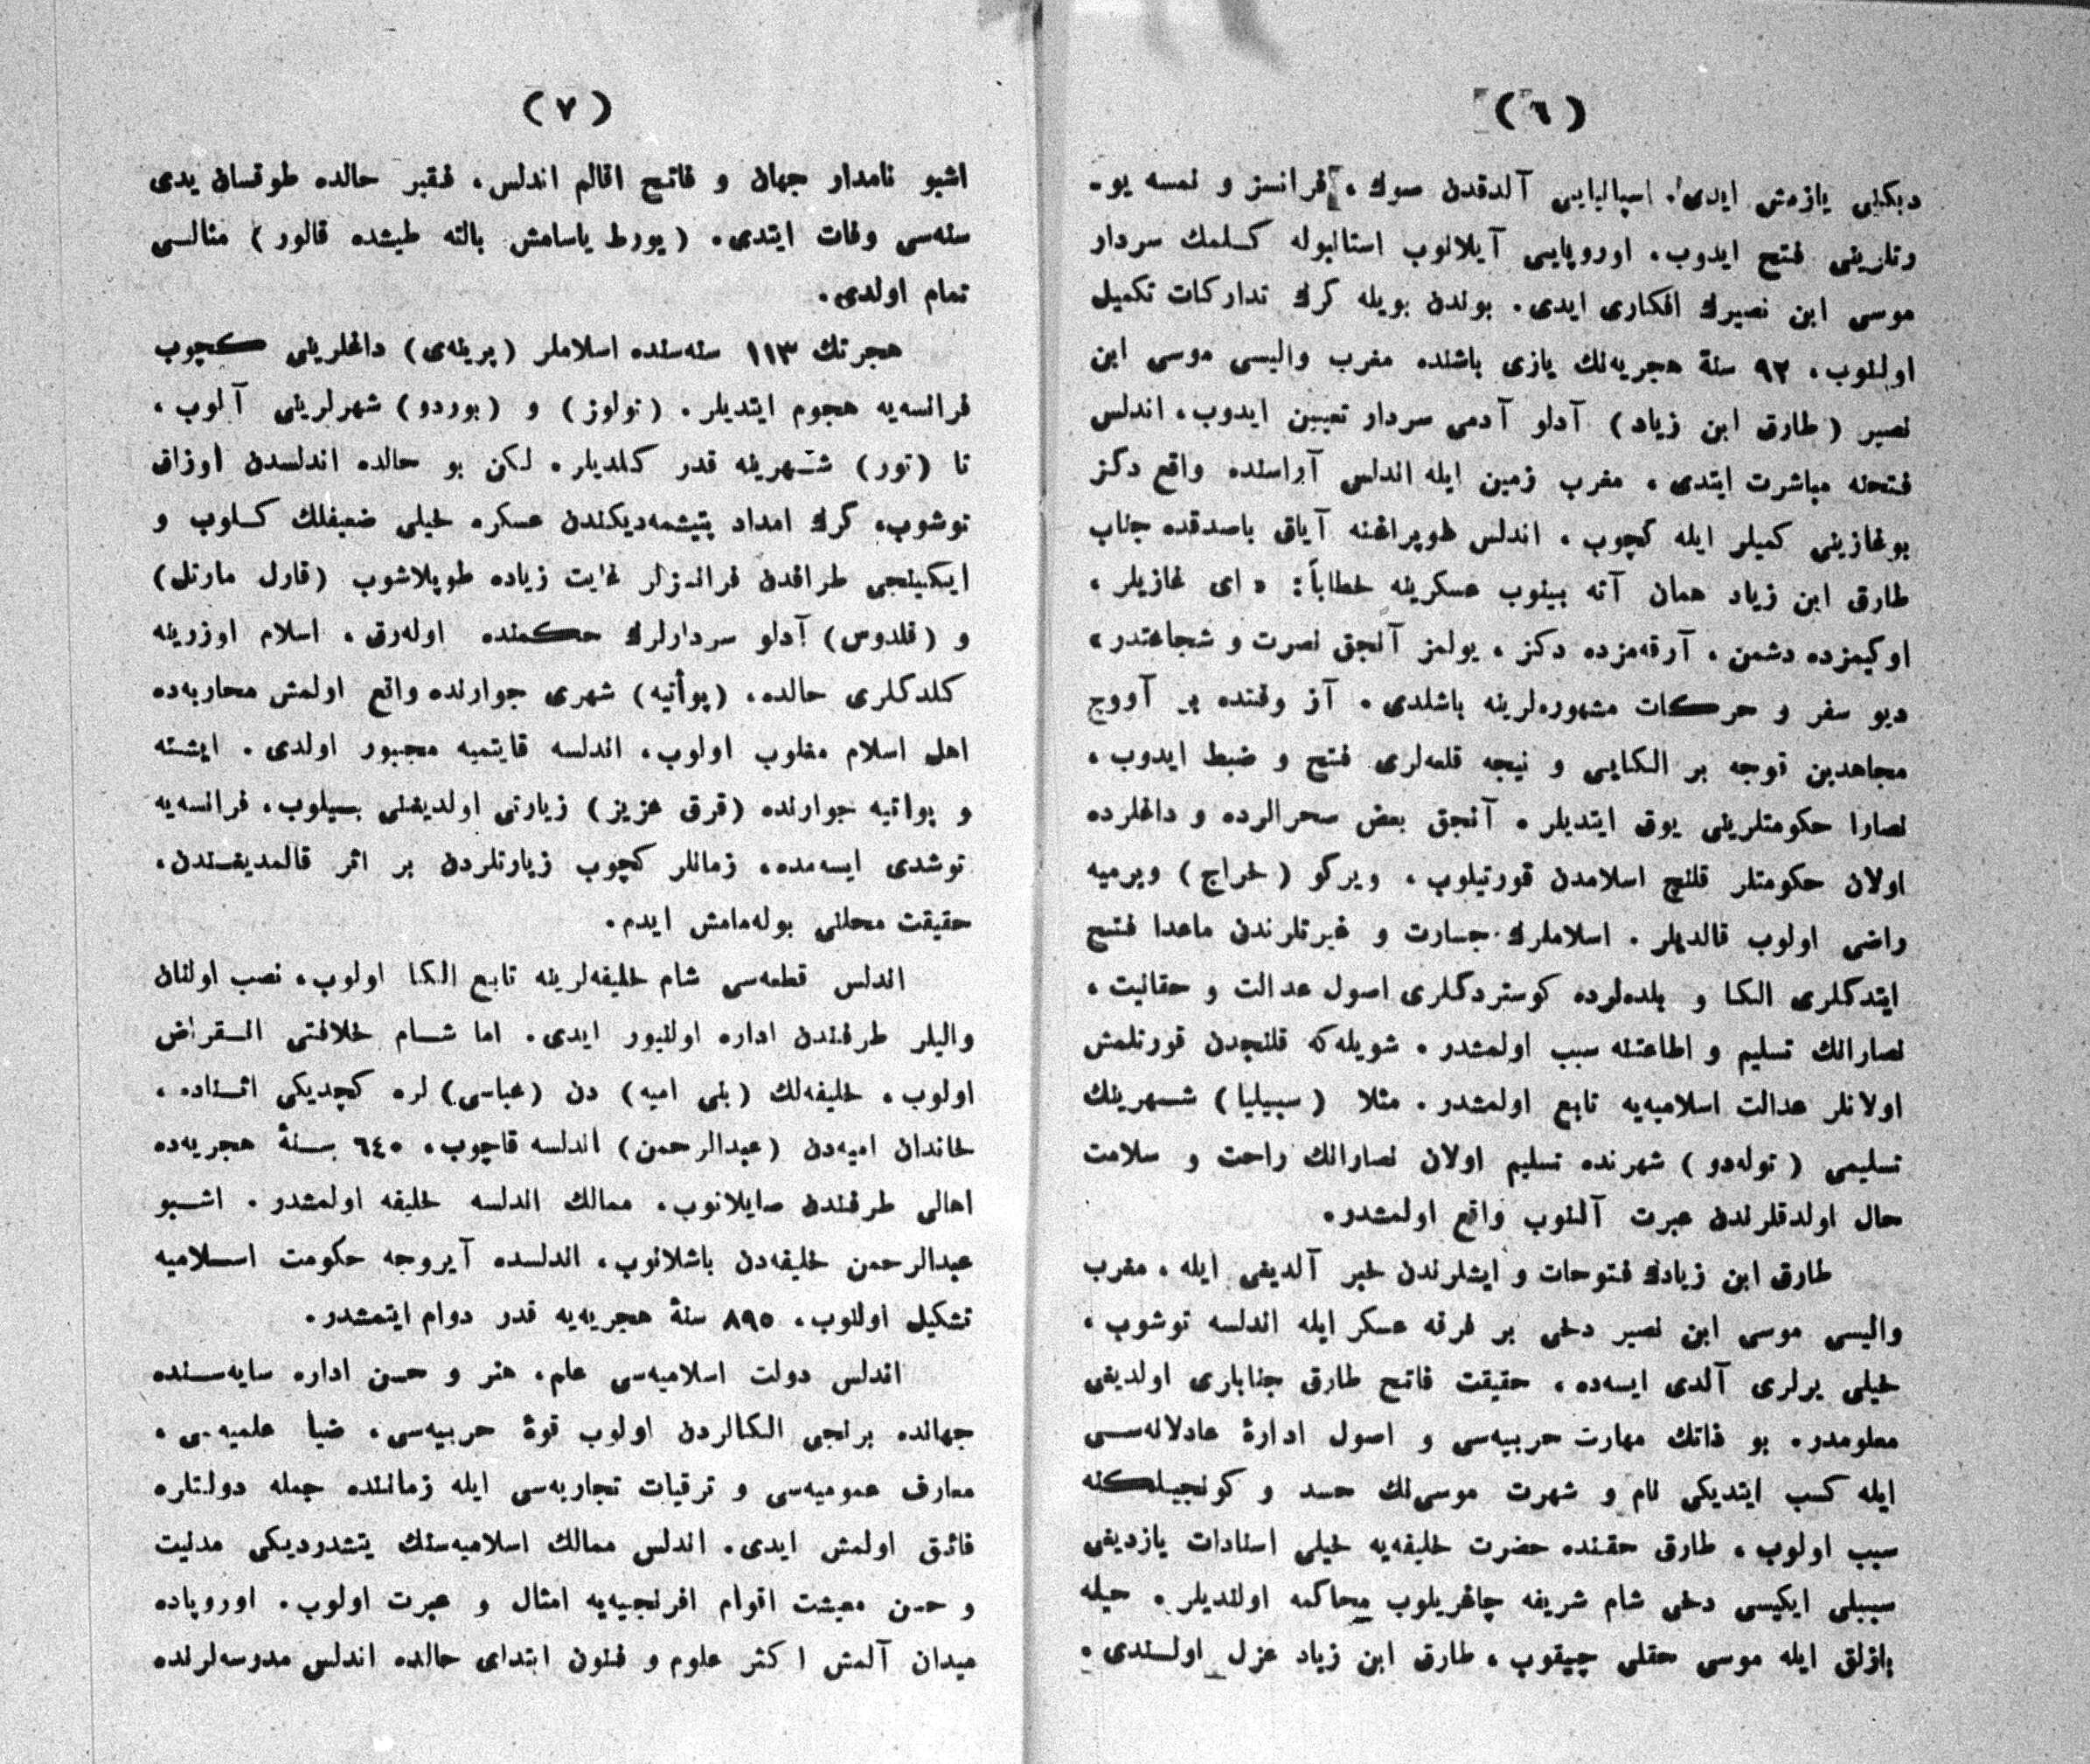 (٦)
دیكنی یازمش ایدی. اسپانیایی آلدقدن صوك، فرانسز و نمسه یو-
رتلرینی فتح ایدوب، اوروپایی آیلانوب استانبوله كلمك سردار
موسی ابن نصیرك افكاری ایدی. بوندن بویله كرك تداركات تكمیل
اولنوب، ٩٢ سنهٔ هجریه‌نك یازی باشنده مغرب والیسی موسی ابن
نصیر (طارق ابن زیاد) آدلو آدمی سردار تعیین ایدوب، اندلس
فتحنه مباشرت ایتدی، مغرب زمین ایله اندلس آراسنده واقع دكز
بوغازینی كمیلر ایله كچوب، اندلس طوپراغنه آیاق باصدقده جناب
طارق ابن زیاد همان آته بینوب عسكرینه خطاباً: «ای غازیلر،
اوكیمزده دشمن، آرقه‌مزده دكز، یولمز آنجق نصرت و شجاعتدر»
دیو سفر و حركات مشهوره‌لرینه باشلدی. آز وقتده بر آووچ
مجاهدین توجه بر الكایی و نیجه قلعه‌لری فتح و ضبط ایدوب،
نصارا حكومتلرینی یوق ایتدیلر. آنجق بعض سحرالرده و داغلرده
اولان حكومتلر قلنچ اسلامدن قورتیلوب، ویركو (خراج) ویرمیه
راضی اولوب قالدیلر. اسلاملرك جسارت و غیرتلرندن ماعدا فتح
ایتدكلری الكا و بلده‌لرده كوستردكلری اصول عدالت و حقانیت،
نصارانك تسلیم و اطاعتنه سبب اولمشدر. شویله‌كه قلنچدن قورتلمش
اولانلر عدالت اسلامیه‌یه تابع اولمشدر. مثلا (سیبیلیا) شهرینك
تسلیمی (توله‌دو) شهرنده تسلیم اولان نصارانك راحت و سلامت
حال اولدقلرندن عبرت آلنوب واقع اولمشدر.
طارق ابن زیادك فتوحات و ایشلرندن خبر آلدیغی ایله، مغرب
والیسی موسی ابن نصیر دخی بر فرقه عسكر ایله اندلسه توشوب،
خیلی یرلری آلدی ایسه‌ده، حقیقت فاتح طارق جنابلری اولدیغی
معلومدر. بو ذاتك مهارت حربیه‌سی و اصول ادارهٔ عادلانه‌سی
ایله كسب ایتدیكی نام و شهرت موسی‌نك حسد و كونجیلكنه
سبب اولوب، طارق حقنده حضرت خلیفه‌یه خیلی اسنادات یازدیغی
سببلی ایكیسی دخی شام شریفه چاغریلوب محاكمه اولندیلر. حیله
بازلق ایله موسی حقلی چیقوب، طارق ابن زیاد عزل اولندی.
(٧)
اشبو نامدار جهان و فاتح اقالم اندلس، فقیر حالده طوقسان یدی
سنه‌سی وفات ایتدی. (یورط یاسامش بالته طیشده قالور) مثالسی
تمام اولدی.
هجرتك ١١٣ سنه‌سنده اسلاملر (پرینه‌ی) داغلرینی كچوب
فرانسه‌یه هجوم ایتدیلر. (تولوز) و (بوردو) شهرلرینی آلوب،
تا (تور) شهرینه قدر كلدیلر. لكن بو حالده اندلسدن اوزاق
توشوب، كرك امداد یتیشمه‌دیكندن عسكره خیلی ضعیفلك كلوب و
ایكینجی طرافدن فرانسزلر غایت زیاده طوپلاشوب (قارل مارتل)
و (قلدوس) آدلو سردارلرك حكمنده اوله‌رق، اسلام اوزرینه
كلدكلری حالده، (پوأتیه) شهری جوارنده واقع اولمش محاربه‌ده
اهل اسلام مغلوب اولوب، اندلسه قایتمیه مجبور اولدی. ایشته
و پواتیه جوارنده (قرق عزیز) زیارتی اولدیغنی بیلوب، فرانسه‌یه
توشدی ایسه‌مده، زمانلر كچوب زیارتلردن بر اثر قالمدیغندن،
حقیقت محلنی بوله‌مامش ایدم.
اندلس قطعه‌سی شام خلیفه‌لرینه تابع الكا اولوب، نصب اولنان
والیلر طرفندن اداره اولنیور ایدی. اما شام خلافتی انقراض
اولوب، خلیفه‌لك (بنی امیه) دن (عباسی) لره كچدیكی اثناده،
خاندان امیه‌دن (عبدالرحمن) اندلسه قاچوب، ٦٤٠ سنهٔ هجریه‌ده
اهالی طرفندن صایلانوب، ممالك اندلسه خلیفه اولمشدر. اشبو
عبدالرحمن خلیفه‌دن باشلانوب، اندلسده آیروجه حكومت اسلامیه
تشكیل اولنوب، ٨٩٥ سنهٔ هجریه‌یه قدر دوام ایتمشدر.
اندلس دولت اسلامیه‌سی علم، هنر و حسن اداره سایه‌سنده
جهانده برنجی الكالردن اولوب قوهٔ حربیه‌سی، ضیا علمیه‌سی،
معارف عمومیه‌سی و ترقیات تجاریه‌سی ایله زماننده جمله دولتلره
فائق اولمش ایدی. اندلس ممالك اسلامیه‌سنك یتشدردیكی مدنیت
و حسن معیشت اقوام افرنجیه‌یه امثال و عبرت اولوب، اوروپاده
میدان آلمش اكثر علوم و فنون ابتدای حالده اندلس مدرسه‌لرنده